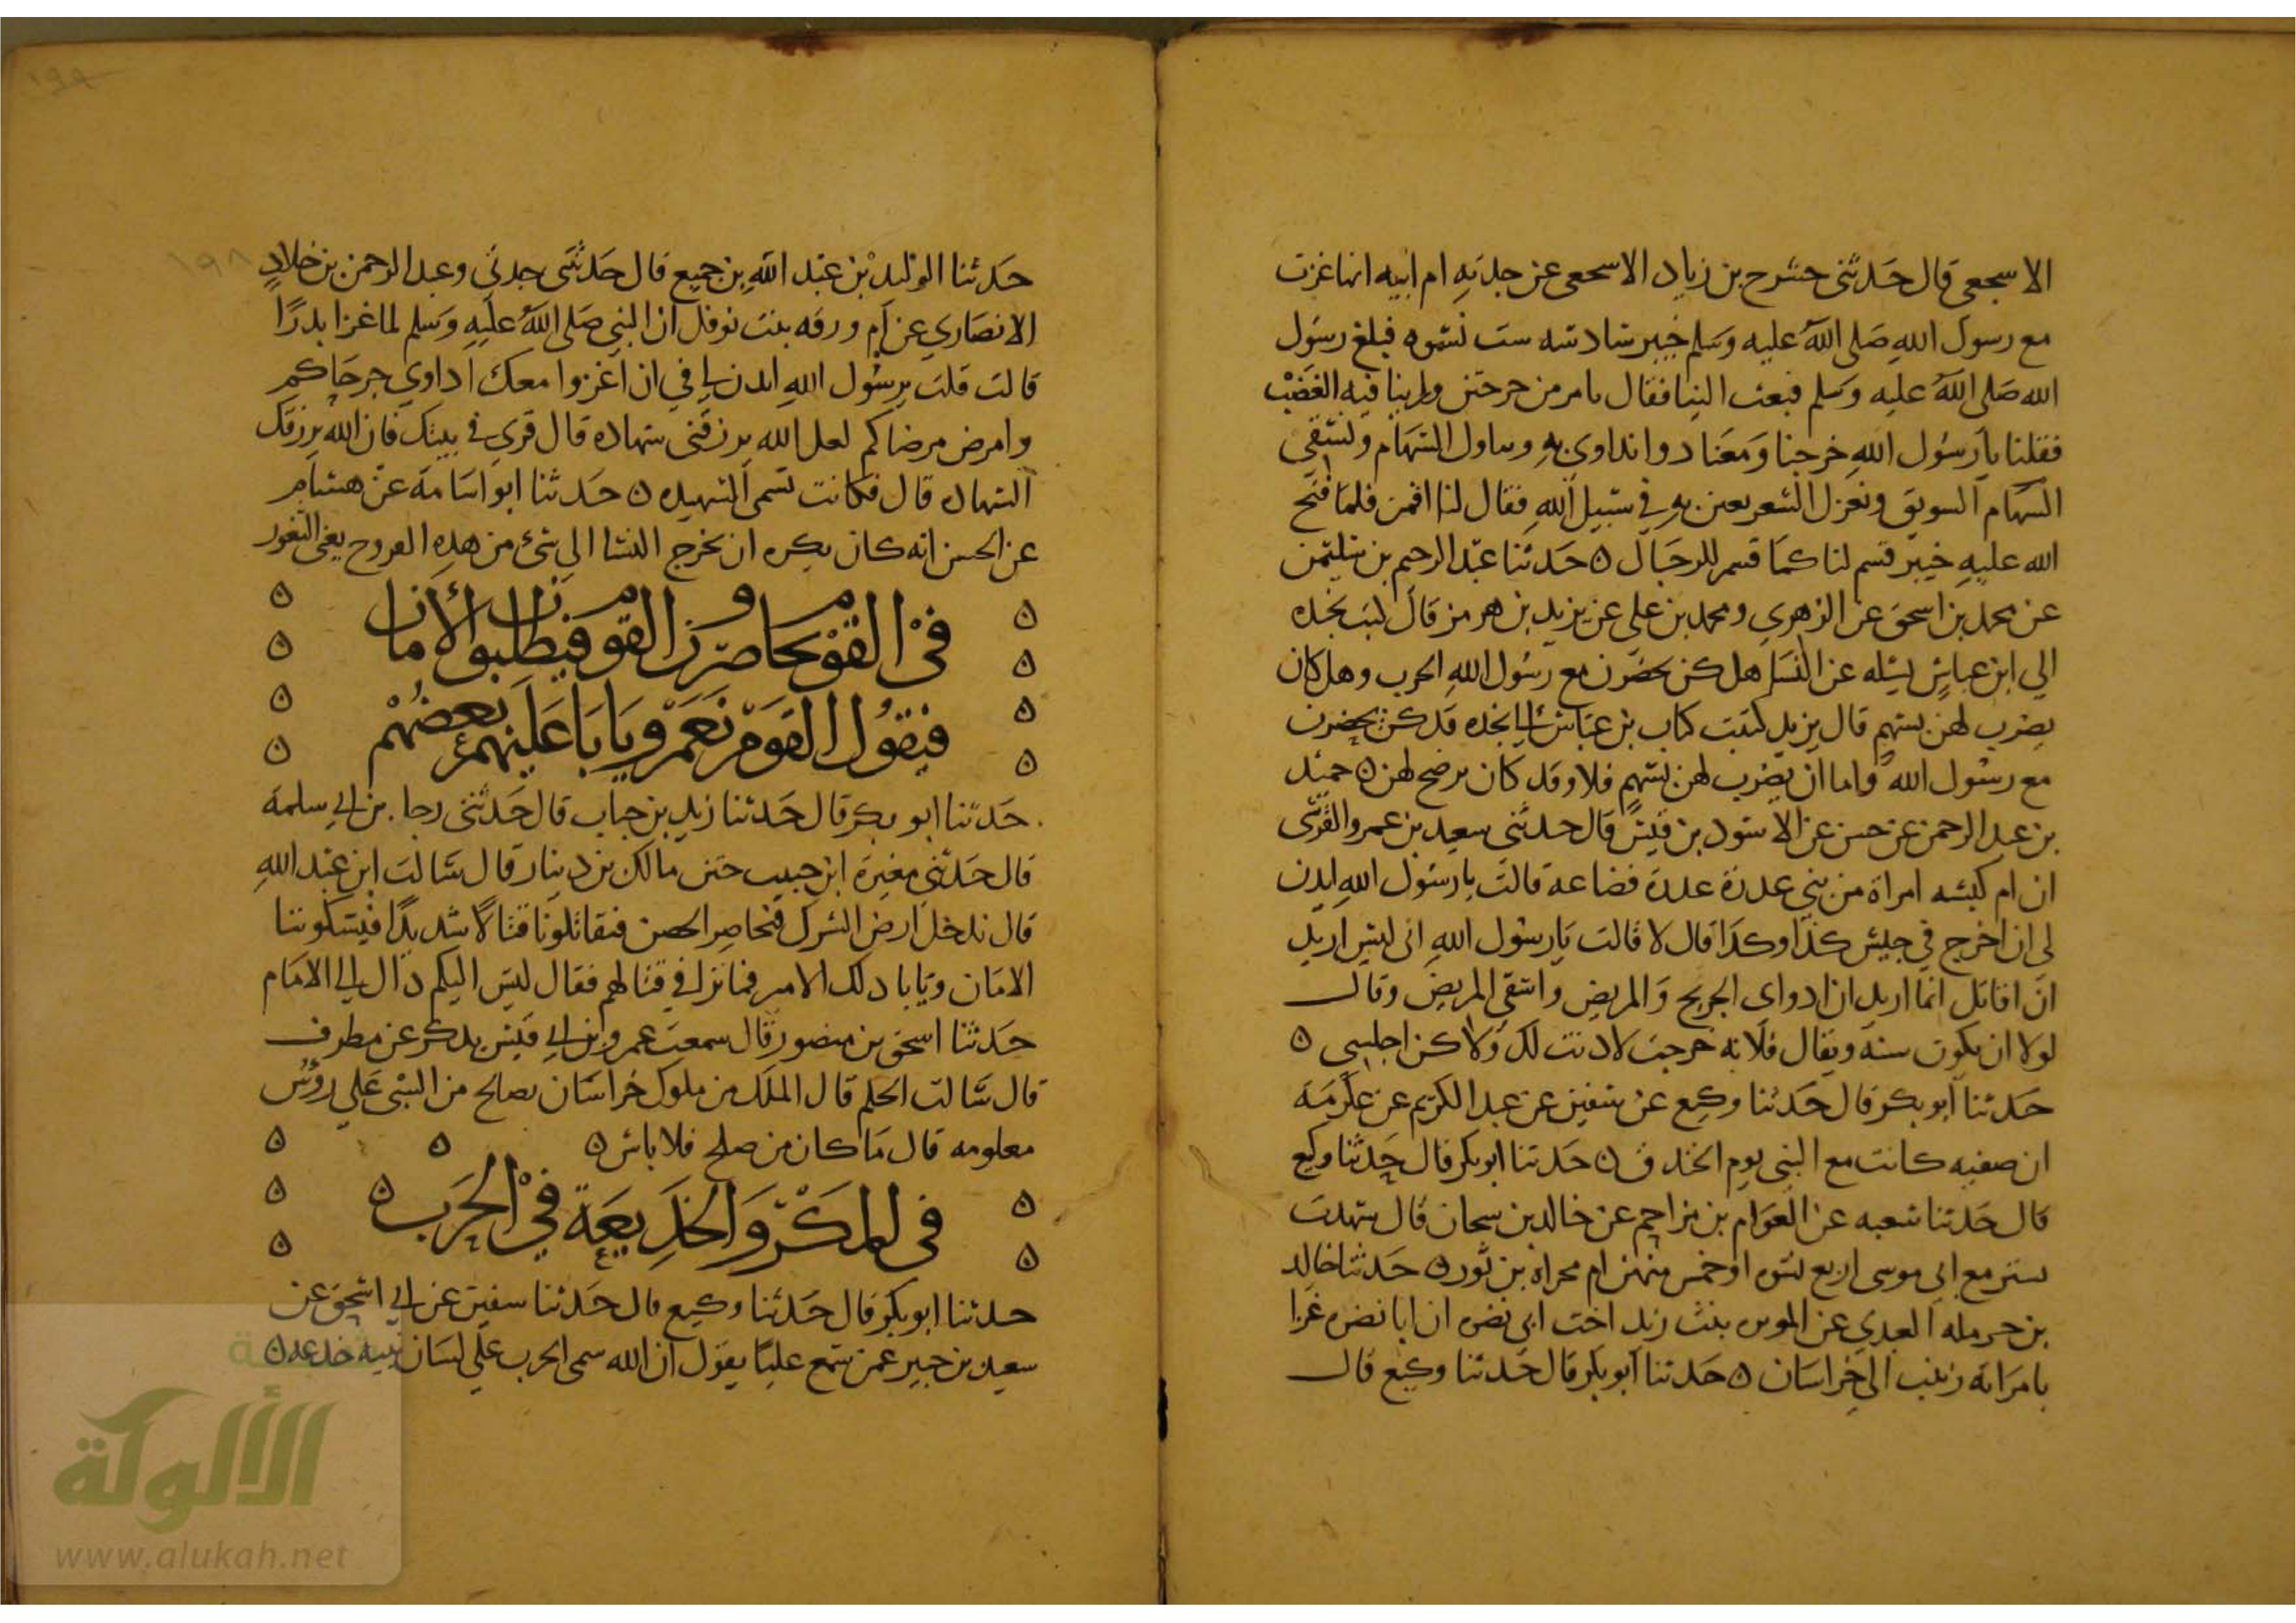 الاسجعي قال حدثني حشرح بن زياد الاسجعي عن جدته ام ابيه انها غزت
مع رسول الله صلى الله عليه وسلم خيبر سادسه ست نسوه فبلغ رسول
الله صلى الله عليه وسلم فبعث الينا فقال بامر من خرجتن وراينا فيه الغضب
فقلنا يا رسول الله خرجنا ومعنا دوا نداوي به ونناول السهام ونسقي
السهام السويق ونغزل الشعر نعين به في سبيل الله فقال لنا اقمن فلما فتح
الله عليه خيبر قسم لنا كما قسم للرجال ٥ حدثنا عبد الرحيم بن سليمن
عن محمد بن اسحق عن الزهري ومحمد بن علي عن يزيد بن هرمز قال كتب نجده
الي ابن عباس يسئله عن النسا هل كن يحضرن مع رسول الله الحرب وهل كان
يضرب لهن بسهم قال يزيد كتبت كتاب بن عباس الي نجده قد كن يحضرن
مع رسول الله واما ان يضرب لهن بسهم فلا وقد كان يرضح لهن ٥ حميد
بن عبد الرحمن عن حسن عن الاسود بن قيس قال حدثني سعيد بن عمرو القرشى
ان ام كبشه امراة من بني عدرة عدرة قضاعة قالت يا رسول الله ايدن
لى ان اخرج في جيش كذا وكذا قال لا قالت يا رسول الله انى ليس اريد
ان اقاتل انما اريد ان ادواى الجريح والمريض واسقي المريض وقال
لولا ان يكون سنه ويقال فلانه خرجت لادنت لك ولاكن اجلسي ٥
حدثنا ابو بكر قال حدثنا وكيع عن سفين عن عبد الكريم عن عكرمه
ان صفيه كانت مع النبي يوم الخندق ٥ حدثنا ابو بكر قال حدثنا وكيع
قال حدثنا شعبه عن العوام بن مزاحم عن خالد بن سيحان قال شهدت
تستر مع ابي موسى اربع نسوه او خمس منهن ام مجزاه بن ثور ٥ حدثنا خالد
بن حرمله العبدي عن بنت زيد اخت ابي نضره ان ابا نضره غزا
بامراته زينب الى خراسان ٥ حدثنا ابو بكر قال حدثنا وكيع قال
حدثنا الوليد بن عبد الله بن جميع قال حدثتني جدتي وعبد الرحمن بن خلاد
الانصاري عن ام ورقه بنت نوفل ان النبي صلى الله عليه وسلم لما غزا بدرا
قالت قلت يرسول الله ايدن لي في ان اغزوا معك اداوي جرحاكم
وامرض مرضاكم لعل الله يرزقنى شهاده قال قري في بيتك فان الله يرزقك
الشهاده قال فكانت تسمى الشهيده ٥ حدثنا ابو اسامة عن هشام
عن الحسن انه كان يكره ان يخرج النسا الى شئ من هذه الفروح يعني الثغور
في القوم يحاصرون القوم فيطلبون الأمان
فيقول القوم نعم ويابا عليهم بعضهم
حدثنا ابو بكر قال حدثنا زيد بن حباب قال حدثني رجا بن ابي سلمة
قال حدثني مغيرة ابن حبيب ختن مالك بن دينار قال سالت ابن عبد الله
قال ندخل ارض الشرك فنحاصر الحصن فيقاتلونا قتالا شديدا فيسئلوننا
الامان ويابا ذلك الامير فما ترا في قتالهم فقال ليس اليكم ذال الي الامام
حدثنا اسحق بن منصور قال سمعت عمرو بن ابي قيس يذكر عن مطرف
قال سالت الحكم قال الملك من ملوك خراسان يصالح من السبى على رؤس
معلومه قال ما كان من صلح فلا باس ٥
في المكر والخديعة في الحرب ٥
حدثنا ابو بكر قال حدثنا وكيع قال حدثنا سفين عن ابي اسحق عن
سعيد بن جبير عمن سمع عليا يقول ان الله سمى الحرب على لسان نبيه خدعه ٥
١٩٨
١٩٩
الألوكة
www.alukah.net